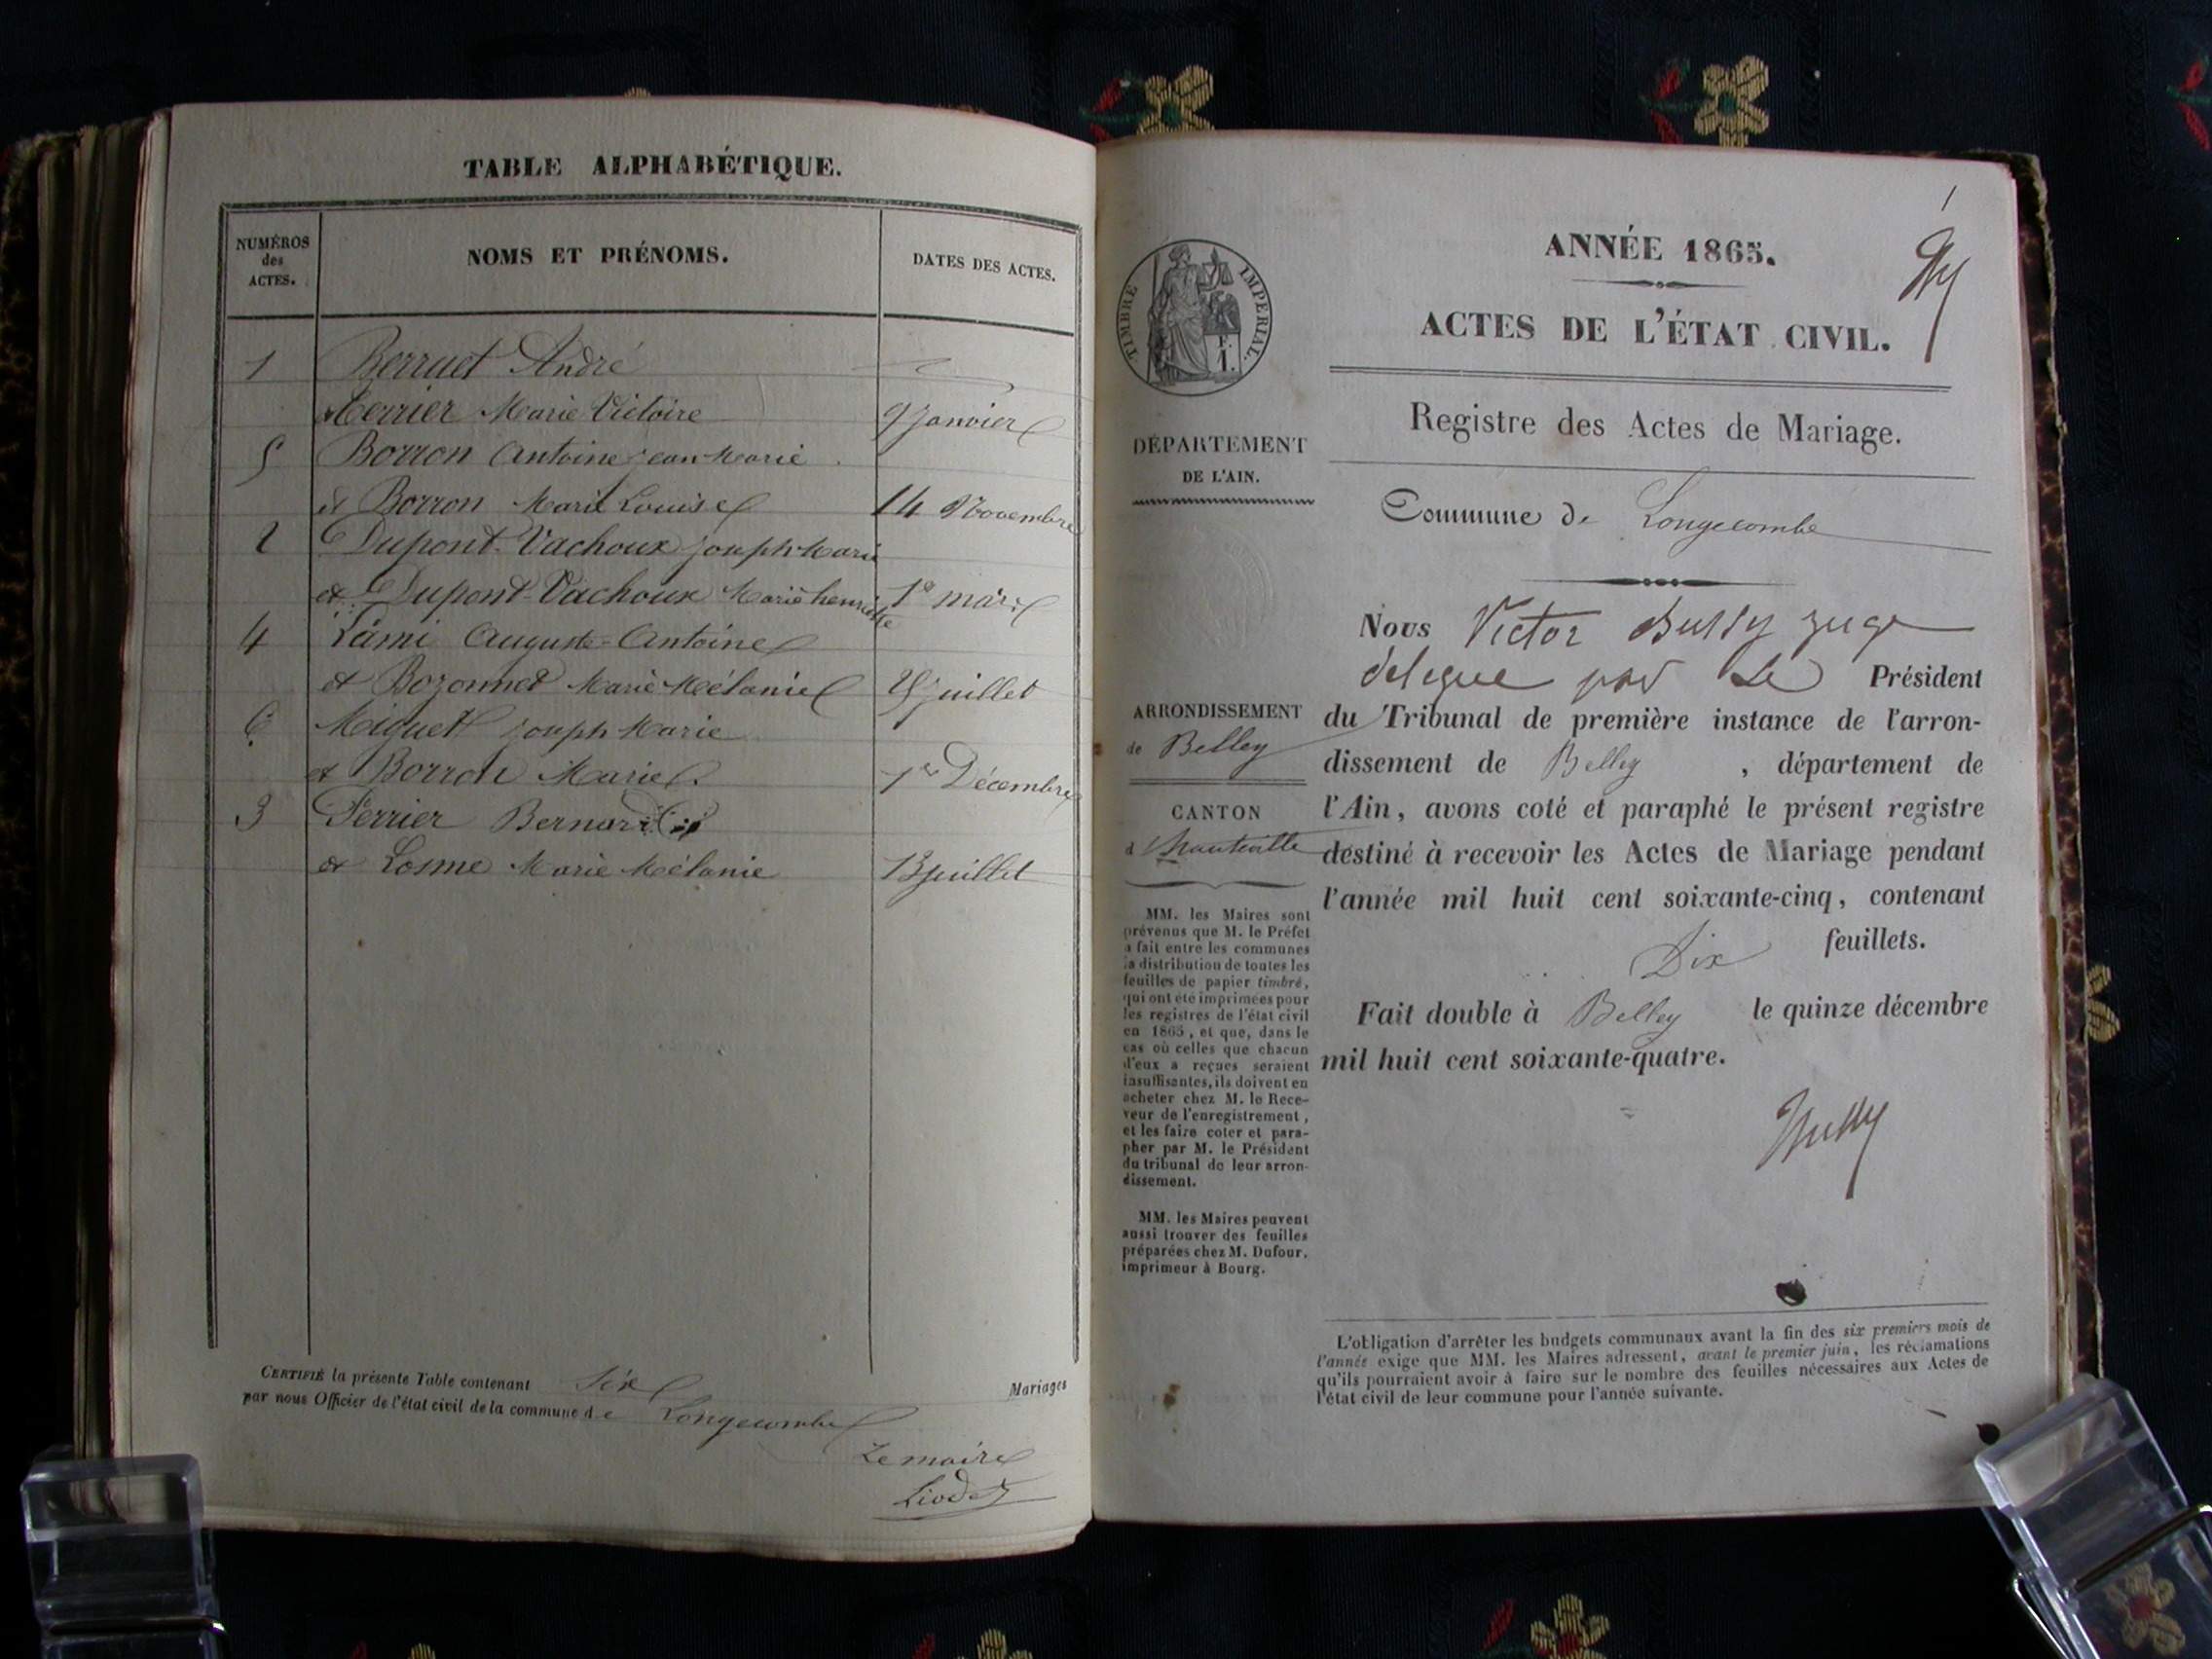 TABLE ALPHABÉTIQUE.
NUMÉROS
des
ACTES.
NOMS ET PRÉNOMS.
DATES DES ACTES.
1 Berruet André
Marie Victoire 9 Janvier
5 Borron Antoine jean Marie
et Borron Marie Louise 14 Novembre
2 Dupont-Vachoux joseph Marie
et Dupont-Vachoux Marie henriette 1er mars
4 Lami Auguste-Antoine
et Bozonnet Marie Mélanie juillet
6 Miguet joseph Marie
et Borron Marie 1er Décembre
3 Perrier Bernard
et Losme Marie Mélanie 13 juillet
CERTIFIÉ la présente Table contenant Six Mariages
par nous Officier de l'état civil de la commune de Longecombe
Le maire
Liodet
1
ANNÉE 1865.
ACTES DE L'ÉTAT CIVIL.
TIMBRE IMPÉRIAL.
F.
1.
Registre des Actes de Mariage.
DÉPARTEMENT
DE L'AIN.
Commune de Longecombe
Nous Victor Bussy juge
délégué par Le Président
du Tribunal de première instance de l'arron-
dissement de Belley, département de
l'Ain, avons coté et paraphé le présent registre
destiné à recevoir les Actes de Mariage pendant
l'année mil huit cent soixante-cinq, contenant
Dix feuillets.
Fait double à Belley le quinze décembre
mil huit cent soixante-quatre.
ARRONDISSEMENT
de Belley
CANTON
d'hauteville
MM. les Maires sont
prévenus que M. le Préfet
a fait entre les communes
la distribution de toutes les
feuilles de papier timbré,
qui ont été imprimées pour
les registres de l'état civil
en 1865, et que, dans le
cas où celles que chacun
d'eux a reçues seraient
insuffisantes, ils doivent en
acheter chez M. le Rece-
veur de l'enregistrement,
et les faire coter et para-
pher par M. le Président
du tribunal de leur arron-
dissement.
MM. les Maires peuvent
aussi trouver des feuilles
préparées chez M. Dufour,
imprimeur à Bourg.
L'obligation d'arrêter les budgets communaux avant la fin des six premiers mois de
l'année exige que MM. les Maires adressent, avant le premier juin, les réclamations
qu'ils pourraient avoir à faire sur le nombre des feuilles nécessaires aux Actes de
l'état civil de leur commune pour l'année suivante.